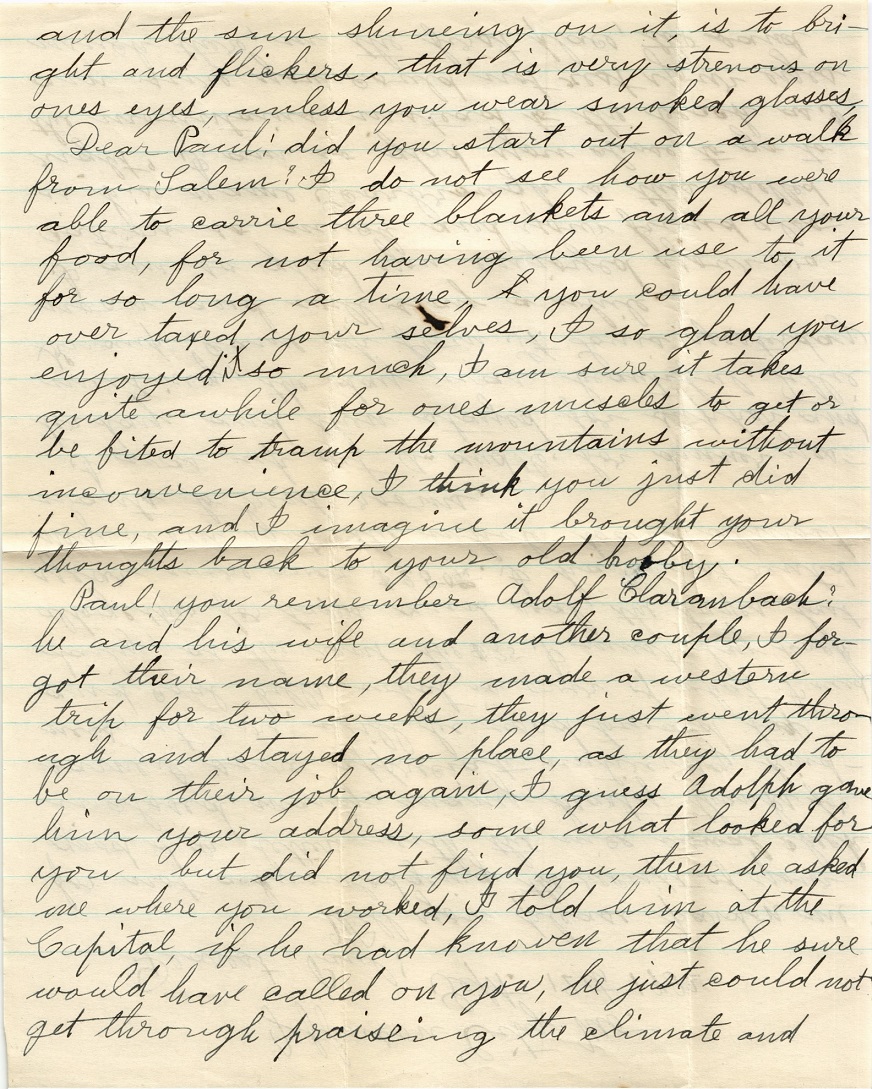 and the sun shineing on it, is to bri-
ght and flickers, that is very strenous on
ones eyes, unless you wear smoked glasses,
Dear Paul! did you start out on a walk
from Salem? I do not see how you were
able to carrie three blankets and all your
food, for not having been use to it
for so long a time, & you could have
over taxed your selves, I so glad you
enjoyed it so much, I am sure it takes
quite awhile for ones muscles to get or
be fited to tramp the mountains without
inconvenience, I think you just did
fine, and I imagine it brought your
thoughts back to your old hobby.
Paul! you remember Adolf Claranbach?
he and his wife and another couple, I for-
got their name, they made a western
trip for two weeks, they just went thro-
ugh and stayed no place, as they had to
be on their job again, I guess Adolph gave
him your address, some what looked for
you but did not find you, then he asked
me where you worked, I told him at the
Capital, if he had knowen that he sure
would have called on you, he just could not
get through praiseing the climate and